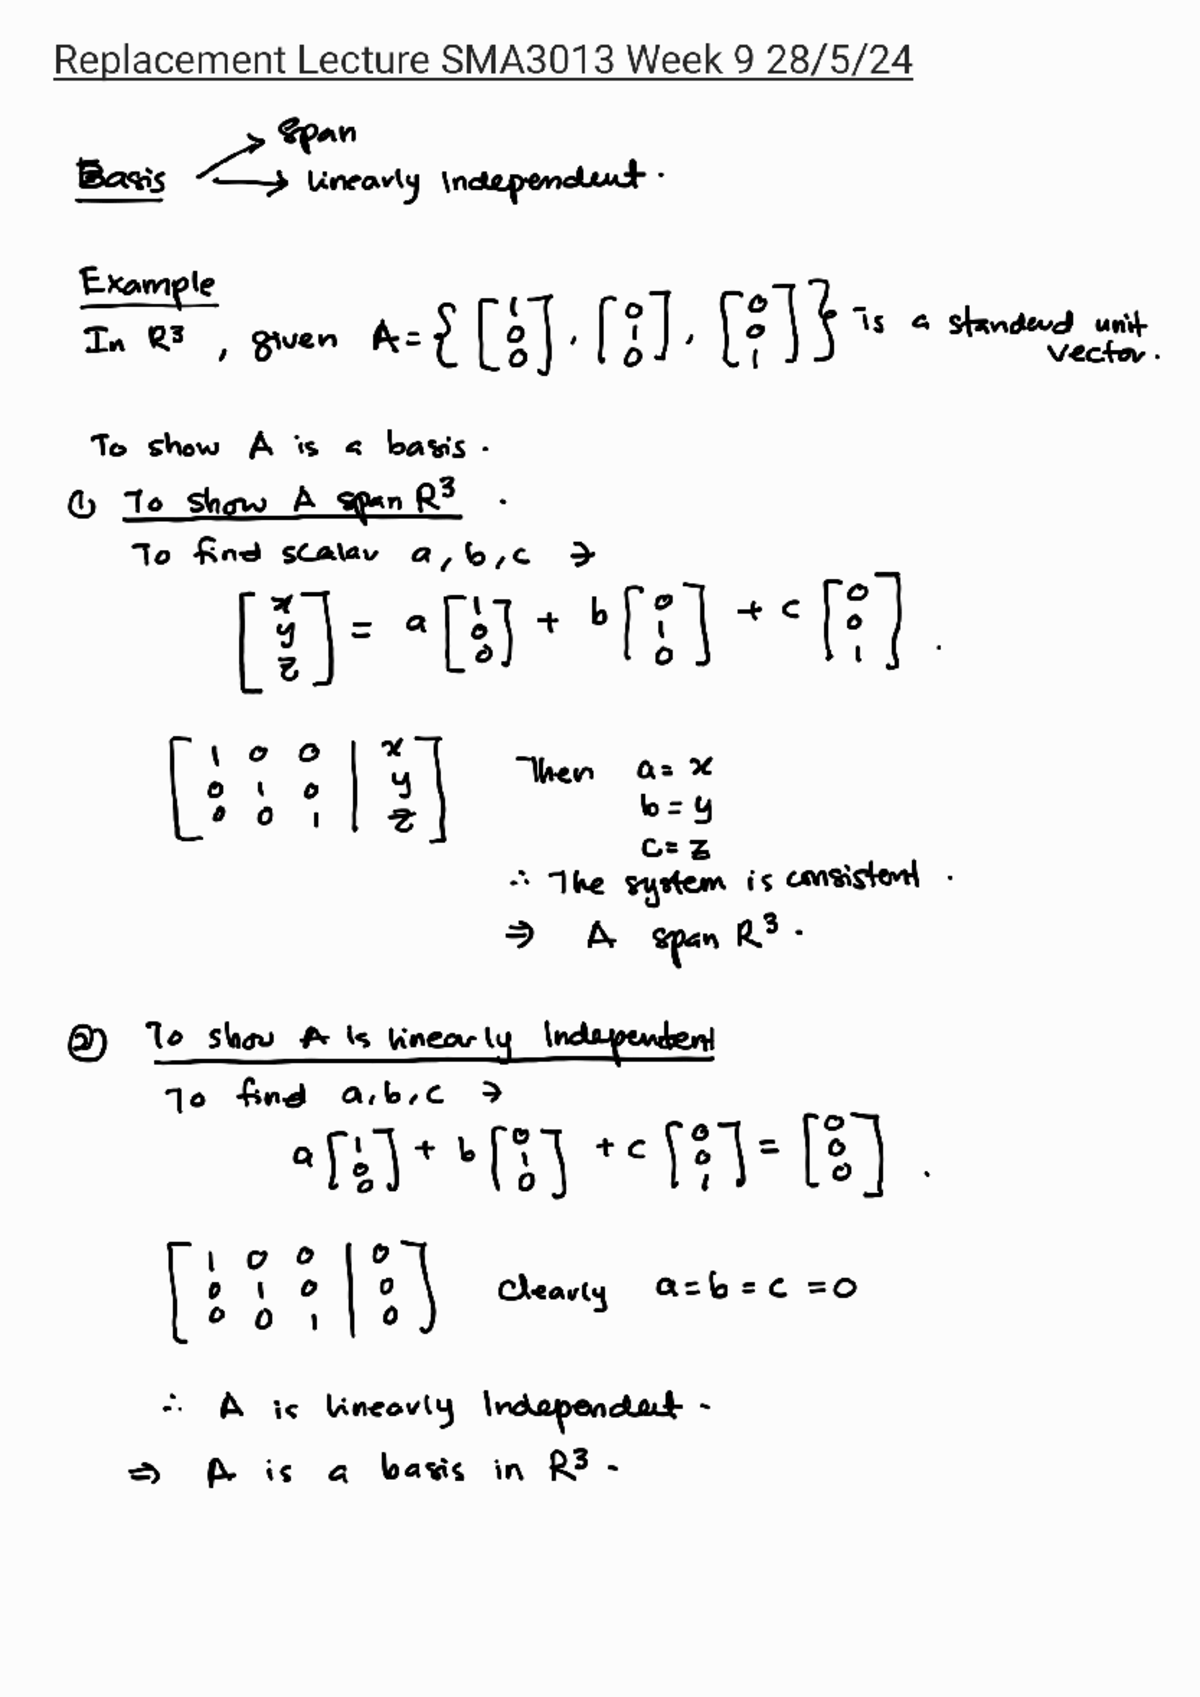 Replacement Lecture SMA3013 Week 9 28/5/24
Basis → span
→ linearly Independent.
Example
In R³, given A = { [1 0 0], [0 1 0], [0 0 1] } is a standard unit vector.
To show A is a basis.
① To show A span R³.
To find scalar a, b, c ∋
[x y z] = a [1 0 0] + b [0 1 0] + c [0 0 1].
[1 0 0 | x
0 1 0 | y
0 0 1 | z]
Then a = x
b = y
c = z
∴ The system is consistent.
⇒ A span R³.
② To show A is linearly Independent
To find a, b, c ∋
a [1 0 0] + b [0 1 0] + c [0 0 1] = [0 0 0].
[1 0 0 | 0
0 1 0 | 0
0 0 1 | 0]
Clearly a = b = c = 0
∴ A is linearly Independent.
⇒ A is a basis in R³.